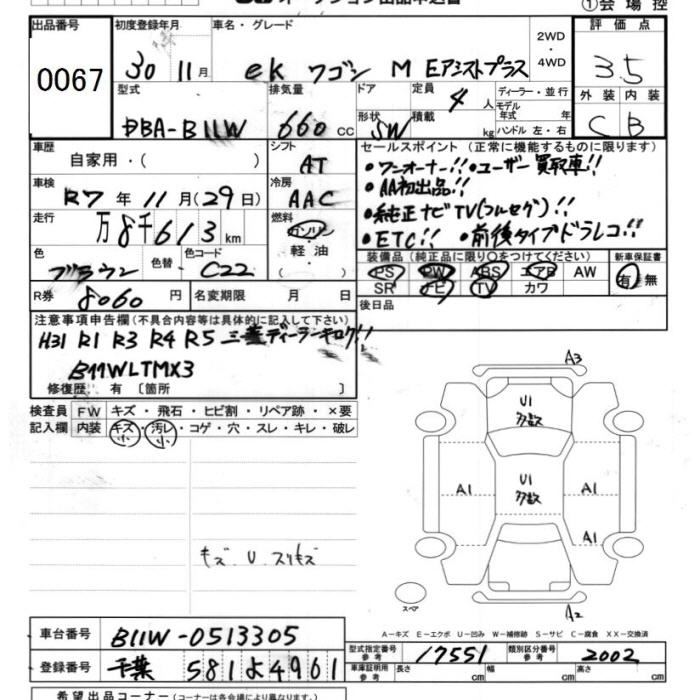 出品番号 0067
初度登録年月 30 11月
車名・グレード ek ワゴン M Eアシストプラス
2WD・4WD
評価点 3.5
外装 内装
C B
型式 DBA-B11W
排気量 660 cc
ドア
定員 4人
形状 SW
積載 kg
ディーラー・並行
モデル年式 年
ハンドル 左・右
車歴 自家用・( )
シフト AT
車検 R7年11月(29日)
冷房 AAC
走行 万8千613km
燃料 ガソリン・軽油
色 ブラウン
色替
色コード C22
R券 8060円
名変期限 月 日
セールスポイント (正常に機能するものに限ります)
・ワンオーナー!!・ユーザー買取車!!
・AA初出品!!
・純正ナビTV(フルセグ)!!
・ETC!! ・前後タイプドラレコ!!
装備品(純正品に限り○をつけてください)
PS PW ABS エアB AW
SR ナビ TV カワ
新車保証書
有・無
後日品
注意事項申告欄(不具合内容等は具体的に記入して下さい)
H31 R1 R3 R4 R5 三菱ディーラーキロク!!
B11WLTMX3
修復歴・有〔箇所 〕
検査員記入欄
FW キズ・飛石・ヒビ割・リペア跡・×要
内装 キズ・汚レ・コゲ・穴・スレ・キレ・破レ
小 小
キズ U スリキズ
A3
U1 多数
U1 多数
A1
A1
A1
A2
スペア
A-キズ E-エクボ U-凹み W-補修跡 S-サビ C-腐食 XX-交換済
車台番号 B11W-0513305
登録番号 千葉 581 よ 4961
型式指定番号 参考 17551
類別区分番号 参考 2002
車庫証明用 参考 長さ cm 幅 cm 高さ cm
希望出品コーナー(コーナーは各会場により異なります)